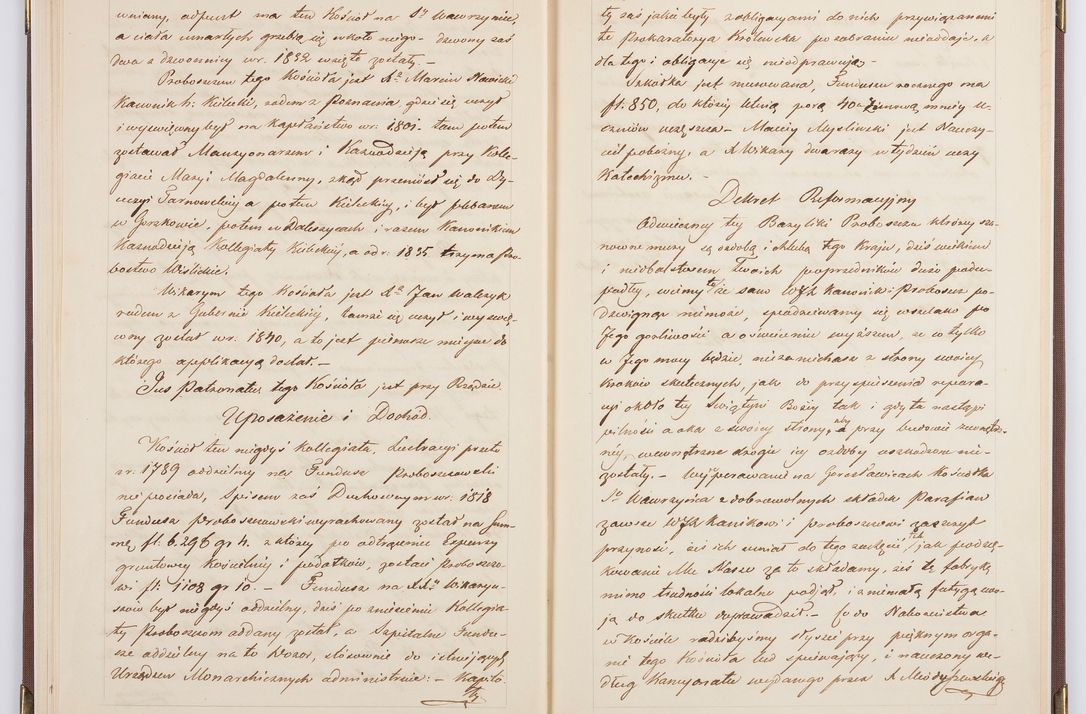 wniany, odpust ma ten Kościół na Sgo Wawrzyńca
a ciała umarłych grzebią się wkoło niego – dzwony zaś
dwa z dzwonnicy w r. 1832 wzięte zostały –
Proboszczem tego Kościoła jest Xs Marcin Nawicki
Kanonik h: Kielecki, rodem z Poznania gdzie się uczył
i wyświęcony był na Kapłaństwo w r. 1801. tam potem
zostawał Mansyonarzem i Kaznodzieją przy Kolle-
giacie Maryi Magdalenny, zkąd przeniósł się do Dy-
ecezyi Tarnowskiej a potem Kieleckiej, i był plebanem
w Gorzkowie, potem w Daleszycach i razem Kanonikiem
Kaznodzieją Kollegiaty Kieleckiej, a od r. 1835 trzyma Pro-
bostwo Wiślickie.
Wikarym tego Kościoła jest Xs Jan Walczyk
rodem z Gubernii Kieleckiej, tamże się uczył i wyświę-
cony został w r. 1840, a to jest pierwsze miejsce do
którego applikacyą dostał. –
Jus Patronatus tego Kościoła jest przy Rządzie.
Uposażenie i Dochód.
Kościół ten niegdyś Kollegiata, Lustracyi przeto
z r. 1789 oddzielny na Fundusz Proboszczowski
nie posiada, Spisem zaś Duchownym w r. 1818
Fundusz proboszczowski wyrachowany został na Sum-
mę fl. 6.296 gr 4. z której po odtrąceniu Expensy
gruntowej Kościelnej i podatków, zostaje Proboszczo-
wi fl. 1108 gr 10. – Fundusz na XXy Wikaryu-
szów był niegdyś oddzielny, dziś po zniesieniu Kollegia-
ty Proboszczom oddany został, a Szpitalne Fundu-
sze oddzielny na to Dozór, stosownie do istniejących
Urządzeń Monarchicznych administruje: – Kapito-
ły
ły zaś jakie były z obligacyami do nich przywiązanemi
te Prokuratorya Królewska po zabraniu nieoddaje, a
dla tego i obligacye się nieodprawują –
Szkółka jest murowana, Fundusz roczny ma
fl. 850, do której letnią porą 40 a Zimową mniej u-
czniów uczęszcza. – Maciej Mysliwski jest Nauczy-
ciel pobożny, a X Wikary dwa razy w tydzień uczy
Katechizmu. –
Dekret Reformacyjny
Odwiecznej tej Bazyliki Proboszczu której sza-
nowne mury są ozdobą i chlubą tego Kraju, dziś wiekiem
i niedbalstwem Twoich poprzedników dużo podu-
padłej, wiemy że te sam WJX Kanonik i Proboszcz po-
dzwignąć niemoże, spodziewamy się wszelako po
Jego gorliwości a oświeceniu wyższem, że co tylko
w Jego mocy będzie, niezaniechasz z strony swojej
kroków skutecznych, jak do przyspieszenia repara-
cyi około tej Świątyni Bożej tak i gdy ta nastąpi
pilności a oka z swojej strony, aby przy budowie zewnętrz-
nej, wewnętrzne drogie jej ozdoby uszkodzone nie-
zostały. – Wyreperowanie na Gorosławicach Kościołka
Sgo Wawrzyńca z dobrowolnych składek Parafian
zawsze WJX Kanikowi i Proboszczowi zaszczyt
przynosi, żeś ich umiał do tego zachęcić, jak podzię-
kowanie Me Nasze za to składamy, żeś tę fabrykę
mimo trudności lokalne podjął, i z niemałą fatygą swo-
ją do skutku doprowadził. – Co do Nabożeństwa
w Kościele radzibyśmy słyszeć przy pięknym orga-
nie tego Kościoła lud śpiewający, i nauczony we-
dług Kancyonału wydanego przez X Mioduszewskiego